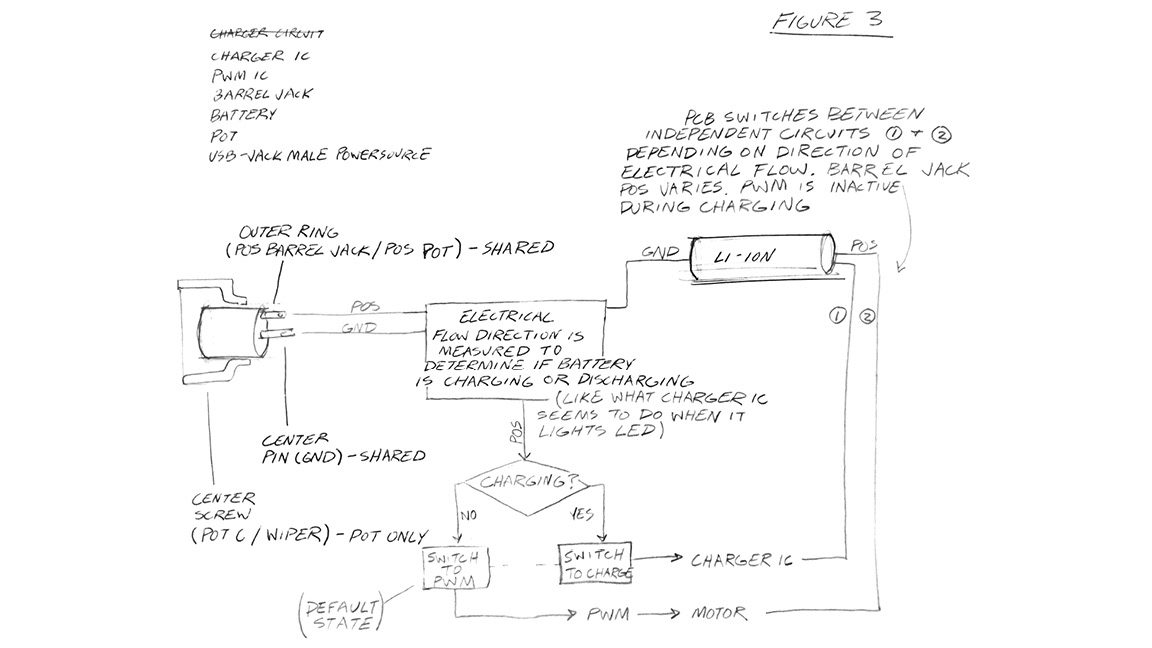 FIGURE 3
CHARGER CIRCUIT
CHARGER IC
PWM IC
BARREL JACK
BATTERY
POT
USB-JACK MALE POWERSOURCE
PCB SWITCHES BETWEEN
INDEPENDENT CIRCUITS ① + ②
DEPENDING ON DIRECTION OF
ELECTRICAL FLOW. BARREL JACK
POS VARIES. PWM IS INACTIVE
DURING CHARGING
OUTER RING
(POS BARREL JACK/POS POT) - SHARED
GND
LI-ION
POS
POS
GND
① ②
ELECTRICAL
FLOW DIRECTION IS
MEASURED TO
DETERMINE IF BATTERY
IS CHARGING OR DISCHARGING
(LIKE WHAT CHARGER IC
SEEMS TO DO WHEN IT
LIGHTS LED)
POS
CENTER
PIN (GND) - SHARED
CHARGING?
CENTER
SCREW
(POT C / WIPER) - POT ONLY
NO
YES
SWITCH
TO
PWM
SWITCH
TO CHARGE
CHARGER IC
(DEFAULT
STATE)
PWM
MOTOR